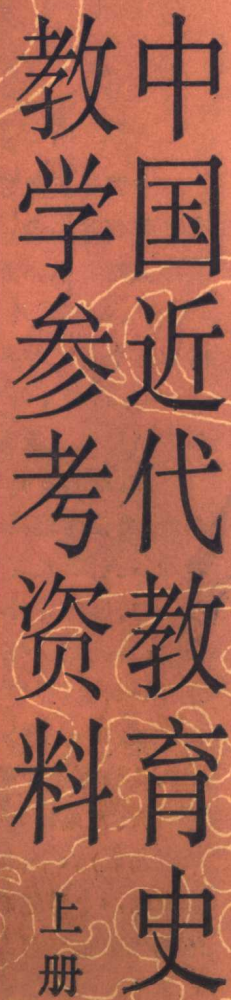 中国近代教育史
教学参考资料
上册